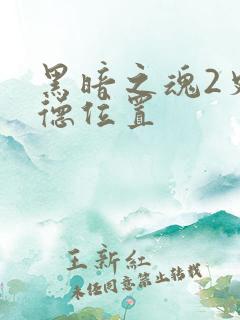 黑暗之魂2
德位置
王新红
未经同意禁止转载